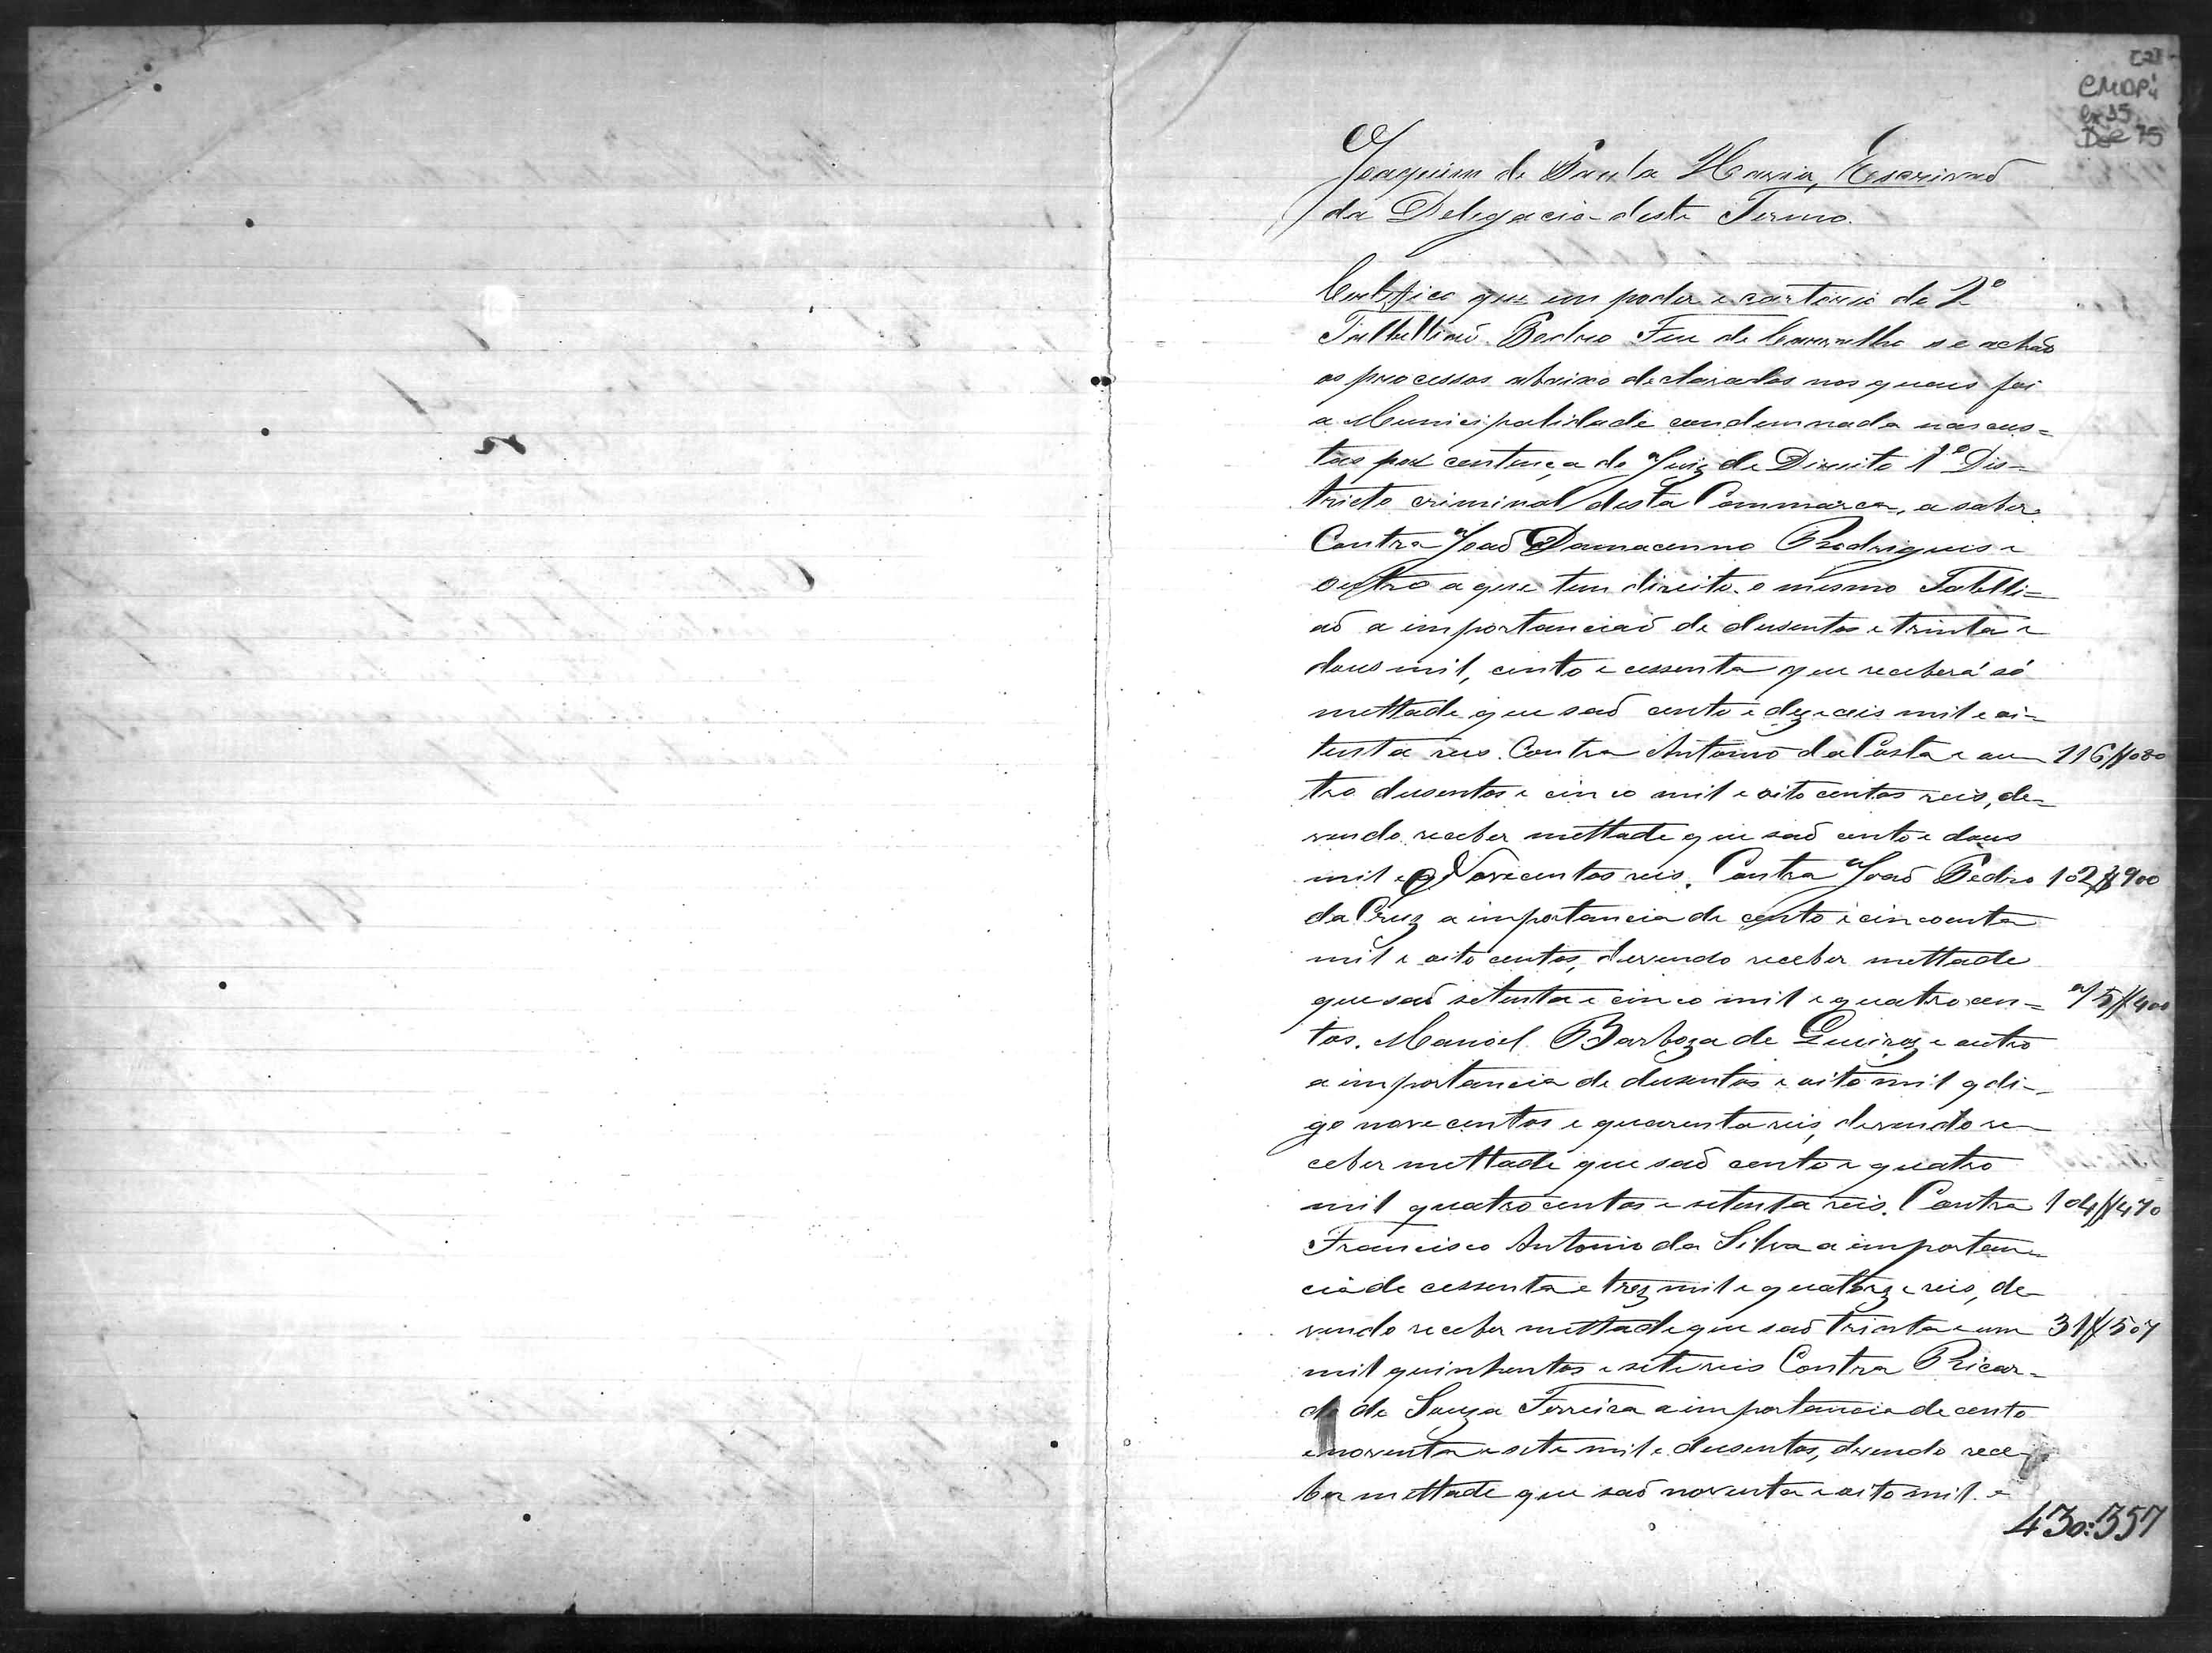 CMOP
Cx 35
Doc 75
Joaquim de Paula Maria, Escrivaõ
da Delegacia deste Termo.
Certifico que em poder e cartorio do 2º
Tabelliaõ Pedro Feu de Carvalho se achaõ
os processos abaixo declarados nos quaes foi
a Municipalidade condemnada nas cus=
tas por centença do Juiz de Direito 1º Dis=
tricto criminal desta Commarca, a saber.
Contra Joaõ Damacenno Rodrigues e
outro a que tem direito o mesmo Tabelli=
aõ a importanciaõ de dusentos e trinta e
dous mil, cento e cessenta que receberá só
mettade que saõ cento e dezeceis mil e oi=
tenta reis. Contra Antonio da Costa e ou 116$080
tro dusentos e cinco mil e oito centos reis, de=
vendo receber mettade que saõ cento e dous
mil e Novecentos reis. Contra Joaõ Pedro 102$900
da Cruz a importancia de cento e cincoenta
mil e oito centos, devendo receber mettade
que saõ setenta e cinco mil e quatro cen= 75$400
tos. Manoel Barboza de Queiroz e outro
a importancia de dusentos e oito mil q di=
go nove centos e quarenta reis, devendo re
ceber mettade que saõ cento e quatro
mil quatro centos e setenta reis. Contra 104$470
Francisco Antonio da Silva a importan
cia de cessenta e trez mil e quatorze reis, de
vendo receber mettade que saõ trinta e um 31$507
mil quinhentos e sete reis Contra Ricar=
do de Souza Ferreira a importancia de cento
e noventa e sete mil e dusentos, devendo rece=
ber mettade que saõ noventa e oito mil e
430:357